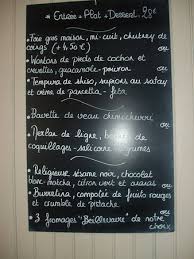 Entrée + Plat + Dessert 28€
• Foie gras maison, mi-cuit, chutney de
coings (+ 4.50 €)
• Wontons de pieds de cochon et
crevettes, guacamole-
• Tempura de shiso, supions au satay
et crème de pancetta -
• Bavette de veau chimichurri,
• Merlan de ligne, bouillon de
coquillages - légumes
• Religieuse stramé noir, chocolat
blanc-matcha, citron vert et ananas
• Burratina, compotée de fruits rouges
et crumble de pistache
• 3 fromages "Beillevaire" de notre
choix